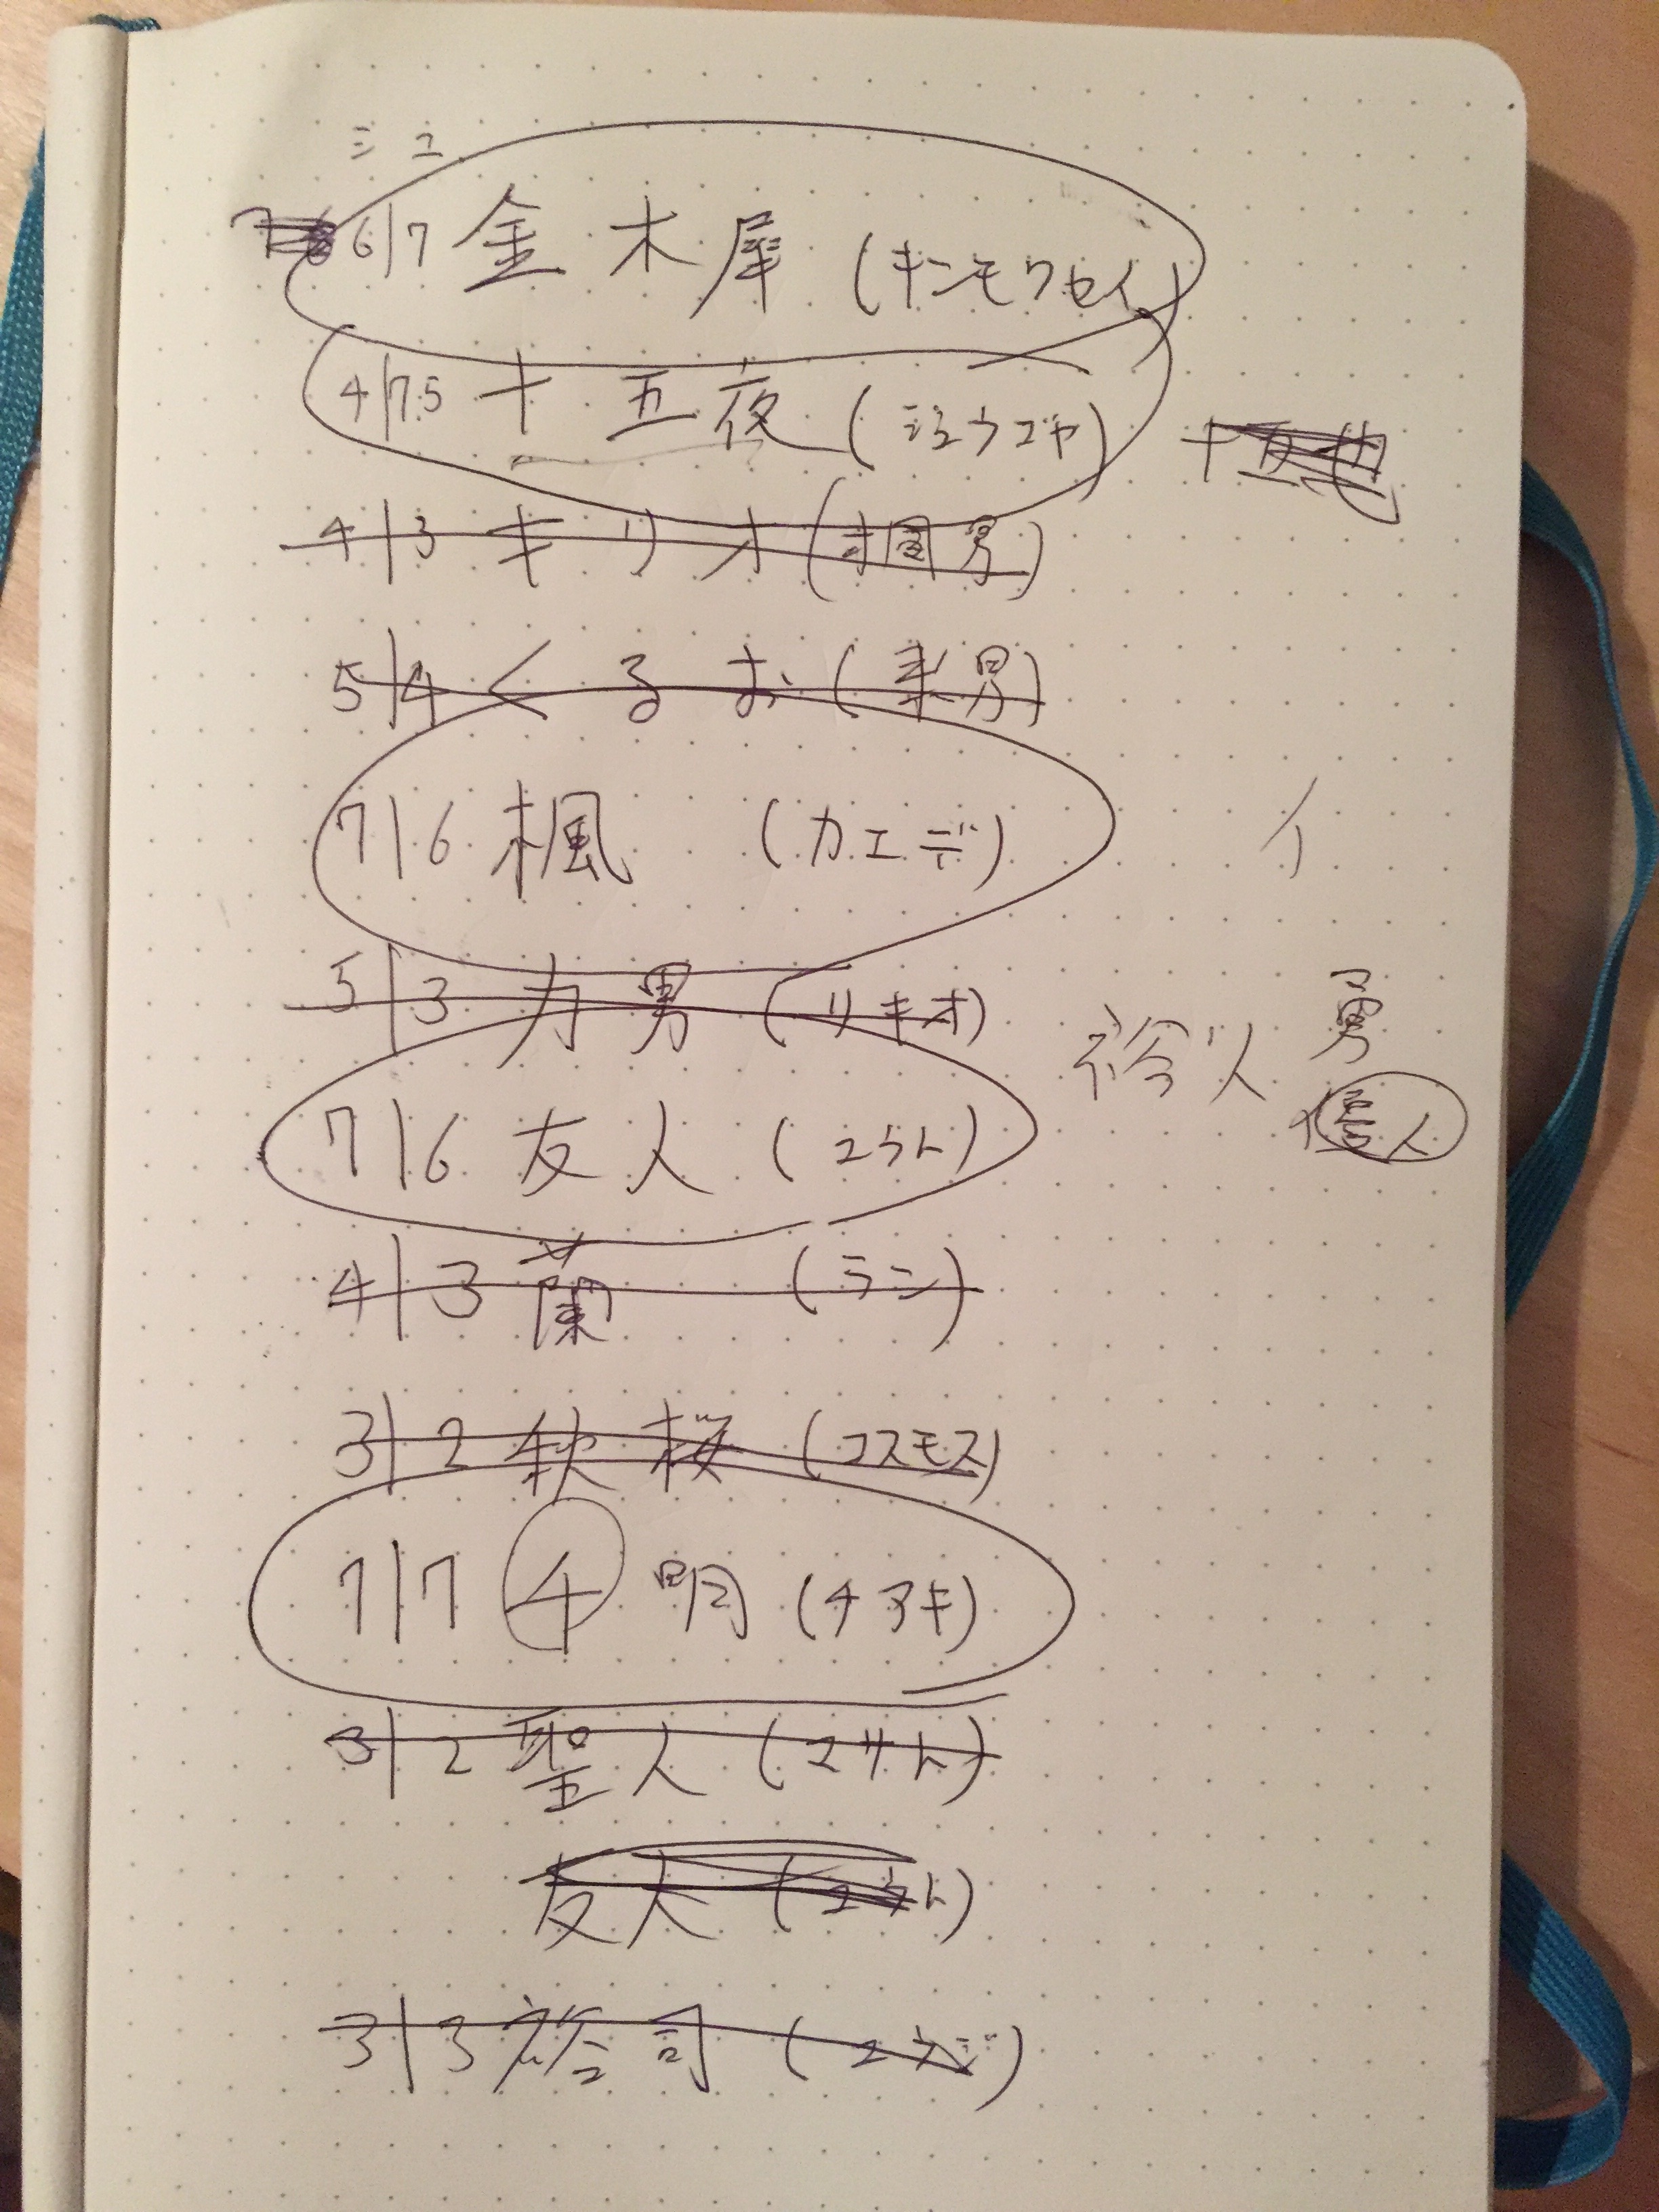 ミ ユ
6|7 金木犀 (キンモクセイ)
4|7.5 十五夜 (ジュウゴヤ)
4|3 キリオ (桐男)
5|4 くるお (来男)
7|6 楓 (カエデ)
イ
5|3 力男 (リキオ)
裕人 勇
7|6 友人 (ユウト)
人
4|3 蘭 (ラン)
3|2 秋桜 (コスモス)
7|7 千明 (チアキ)
3|2 聖人 (マサト)
友人 (ユウト)
3|3 裕司 (ユウジ)